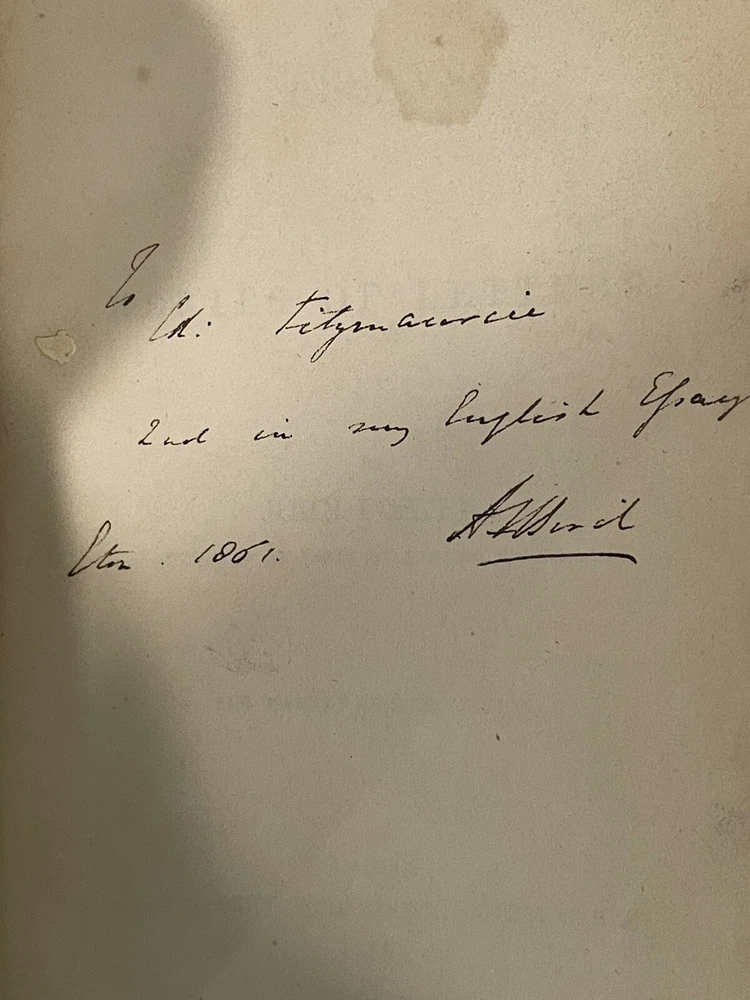 To
Ed: Fitzmaurice
2nd in my English Essay
Eton. 1861.